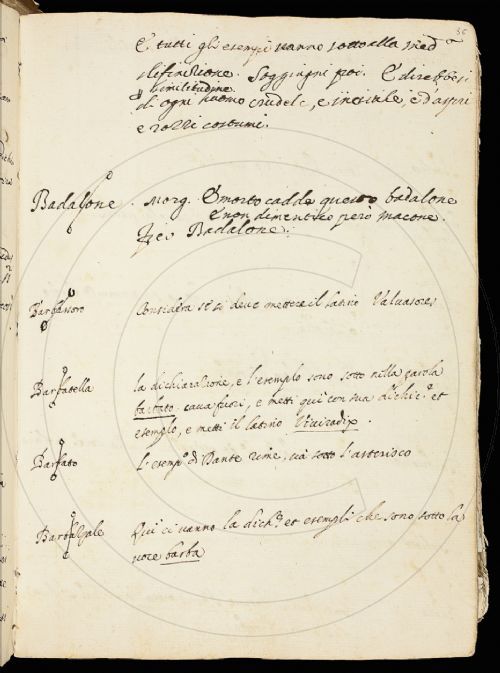 36
E tutti gli esempi vanno sotto alla med.ª
definizione. Soggiugni poi. E direbbesi
p similitudine
di ogni huomo crudele, e incivile, e d'aspri
e rozzi costumi.
Badalone. Morg. E morto cadde questo badalone
E non dimentico però Macone.
Badalone.
Barbassoro Considera se si deve mettere il latino Valvasores
Barbatella la dichiarazione, e l'esemplo sono sotto nella parola
barbato. cava fuori, e metti qui con sua dichic.e et
esemplo, e metti il latino Viviradix.
Barbato L'esemp.o di Dante rime, và sotto l'asterisco
Barbicale Qui ci vanno la dich.e et esempli che sono sotto la
voce barba